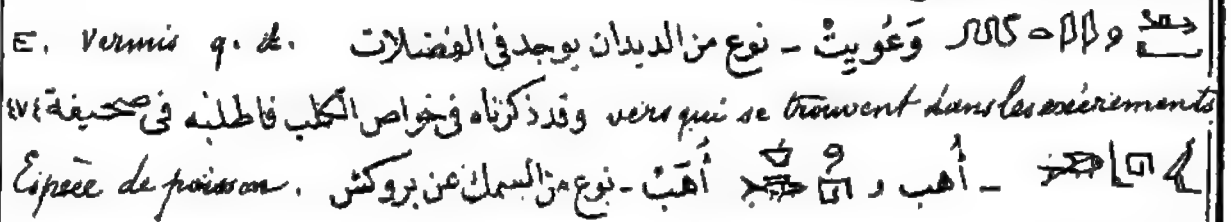 وَعُوِيتْ - نوع من الديدان يوجد في الفضلات E. Vermis q. d.
vers qui se trouvent dans les excréments وقد ذكرناه في خواص الكلب فاطلبه في صحيفة ٤٧٤
- أُهب و أُهَبْ - نوع من السمك عن بروكش Espèce de poisson.